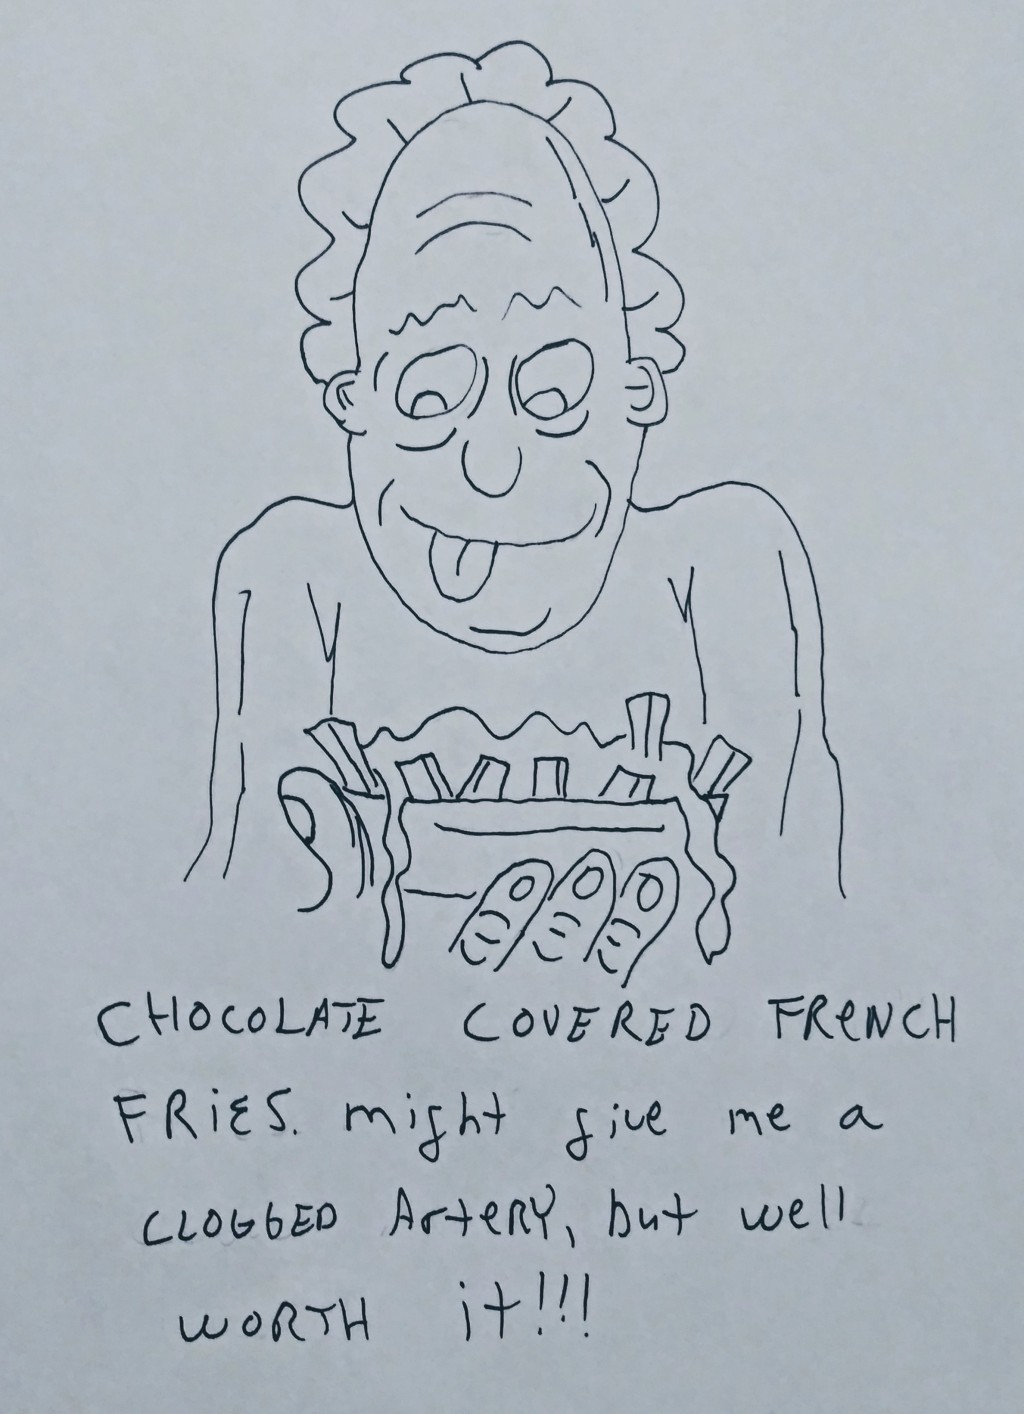 CHOCOLATE COVERED FRENCH
FRIES. might give me a
CLOGGED ArteRY, but well
WORTH it!!!